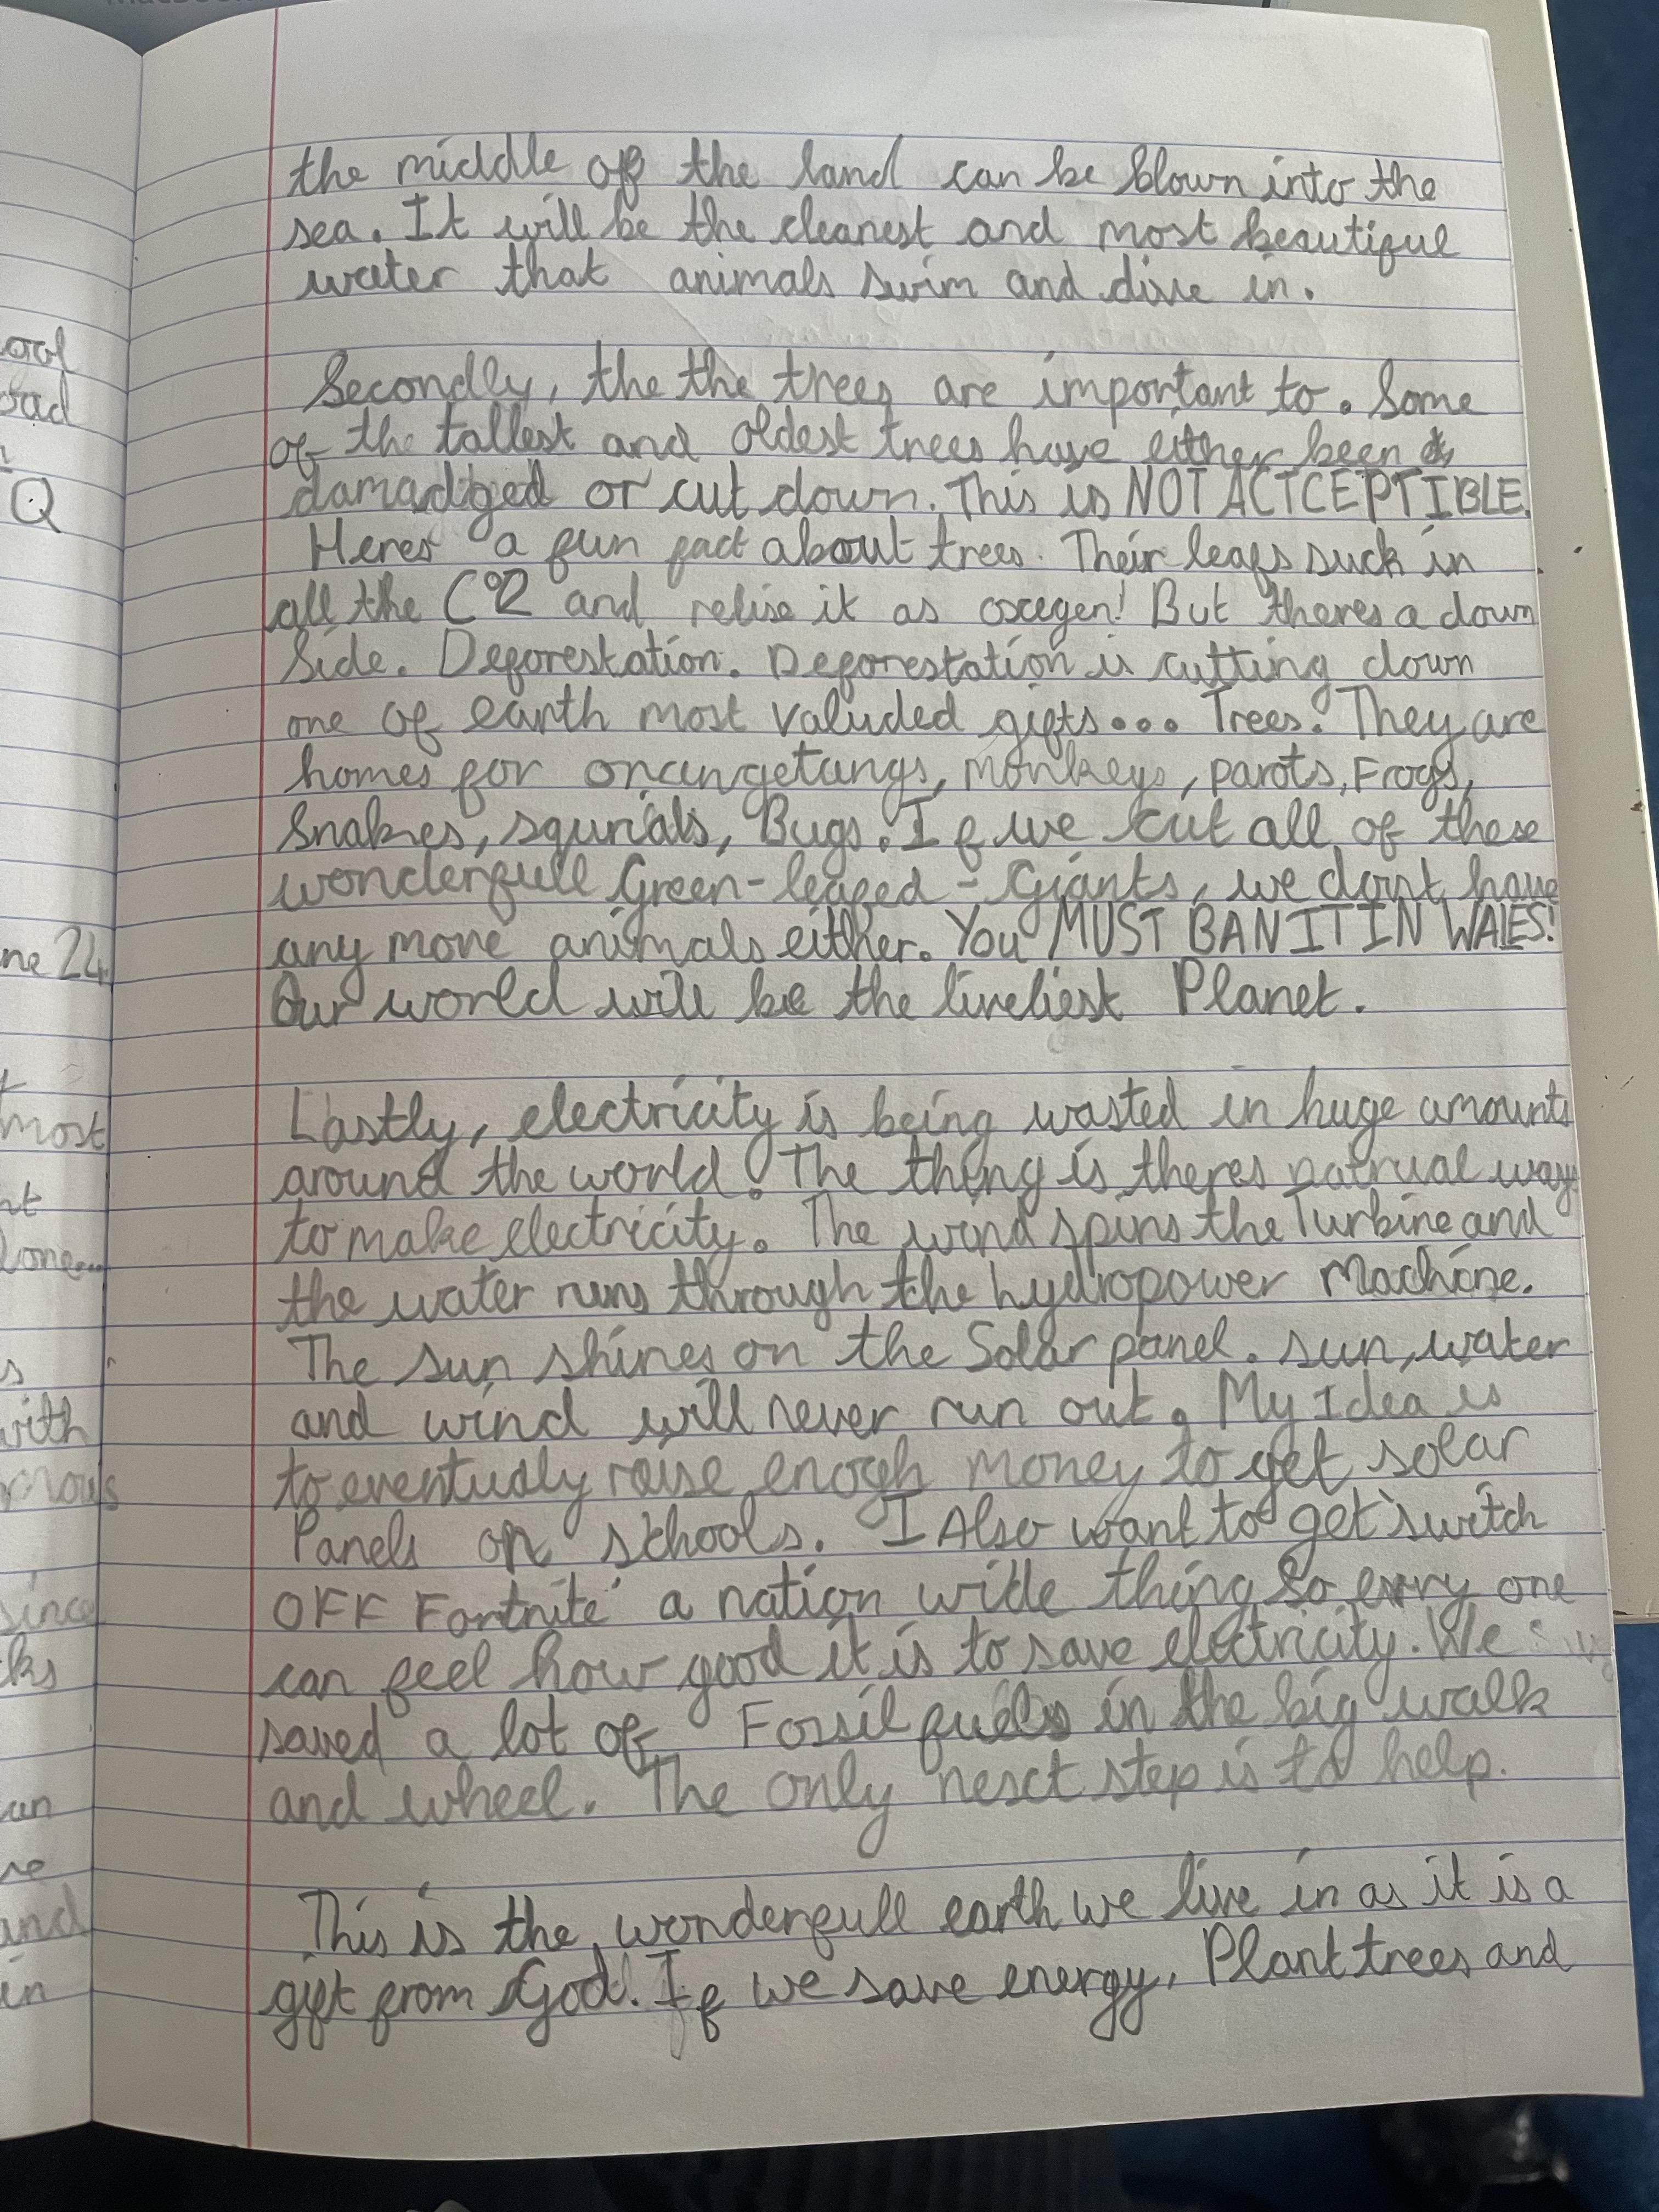 the middle of the land can be blown into the
sea. It will be the cleanest and most beautiful
water that animals swim and dive in.
Secondly, the the trees are important to. Some
of the tallest and oldest trees have either been
damadged or cut down. This is NOT ACTCEPTIBLE.
Heres a fun fact about trees. Their leafs suck in
all the CO2 and relise it as oxcegen! But theres a down
Side. Deforestation. Deforestation is cutting down
one of earth most valuded gifts... Trees. They are
homes for orangetangs, monkeys, parots, Frogs,
Snakes, squrials, Bugs. If we cut all of these
wonderfull Green-leafed-Giants, we dont have
any more animals either. You MUST BAN IT IN WALES!
Our world will be the liveliest Planet.
Lastly, electricity is being wasted in huge amounts
around the world! The thing is theres natrual ways
to make electricity. The wind spins the Turbine and
the water runs through the hydropower Machine.
The sun shines on the Solar panel. sun, water
and wind will never run out. My Idea is
to eventually raise enogh money to get solar
Panels on schools. I Also want to get 'switch
OFF Fortnite' a nation wide thing So every one
can feel how good it is to save electricity. We
saved a lot of Fossil fuels in the big walk
and wheel. The only nesct step is to help.
This is the wonderfull earth we live in as it is a
gift from God. If we save energy, Plant trees and
ool
Q
ne 24
most
nt
with
since
ks
and
in